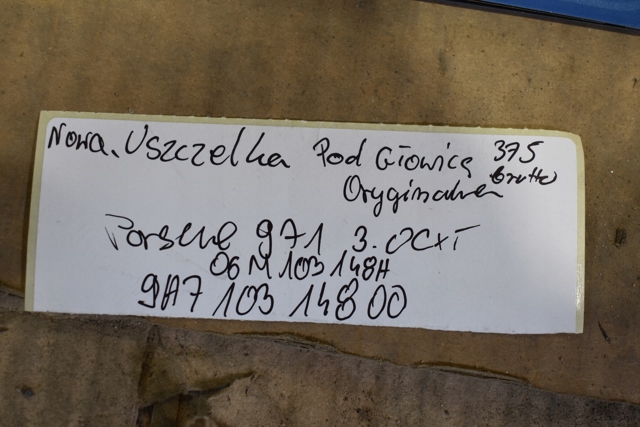 Nowa. Uszczelka Pod Głowicą 375
Oryginalna brutto
Porsche 971 3.0CXT
06M 103 148H
9A7 103 148 00